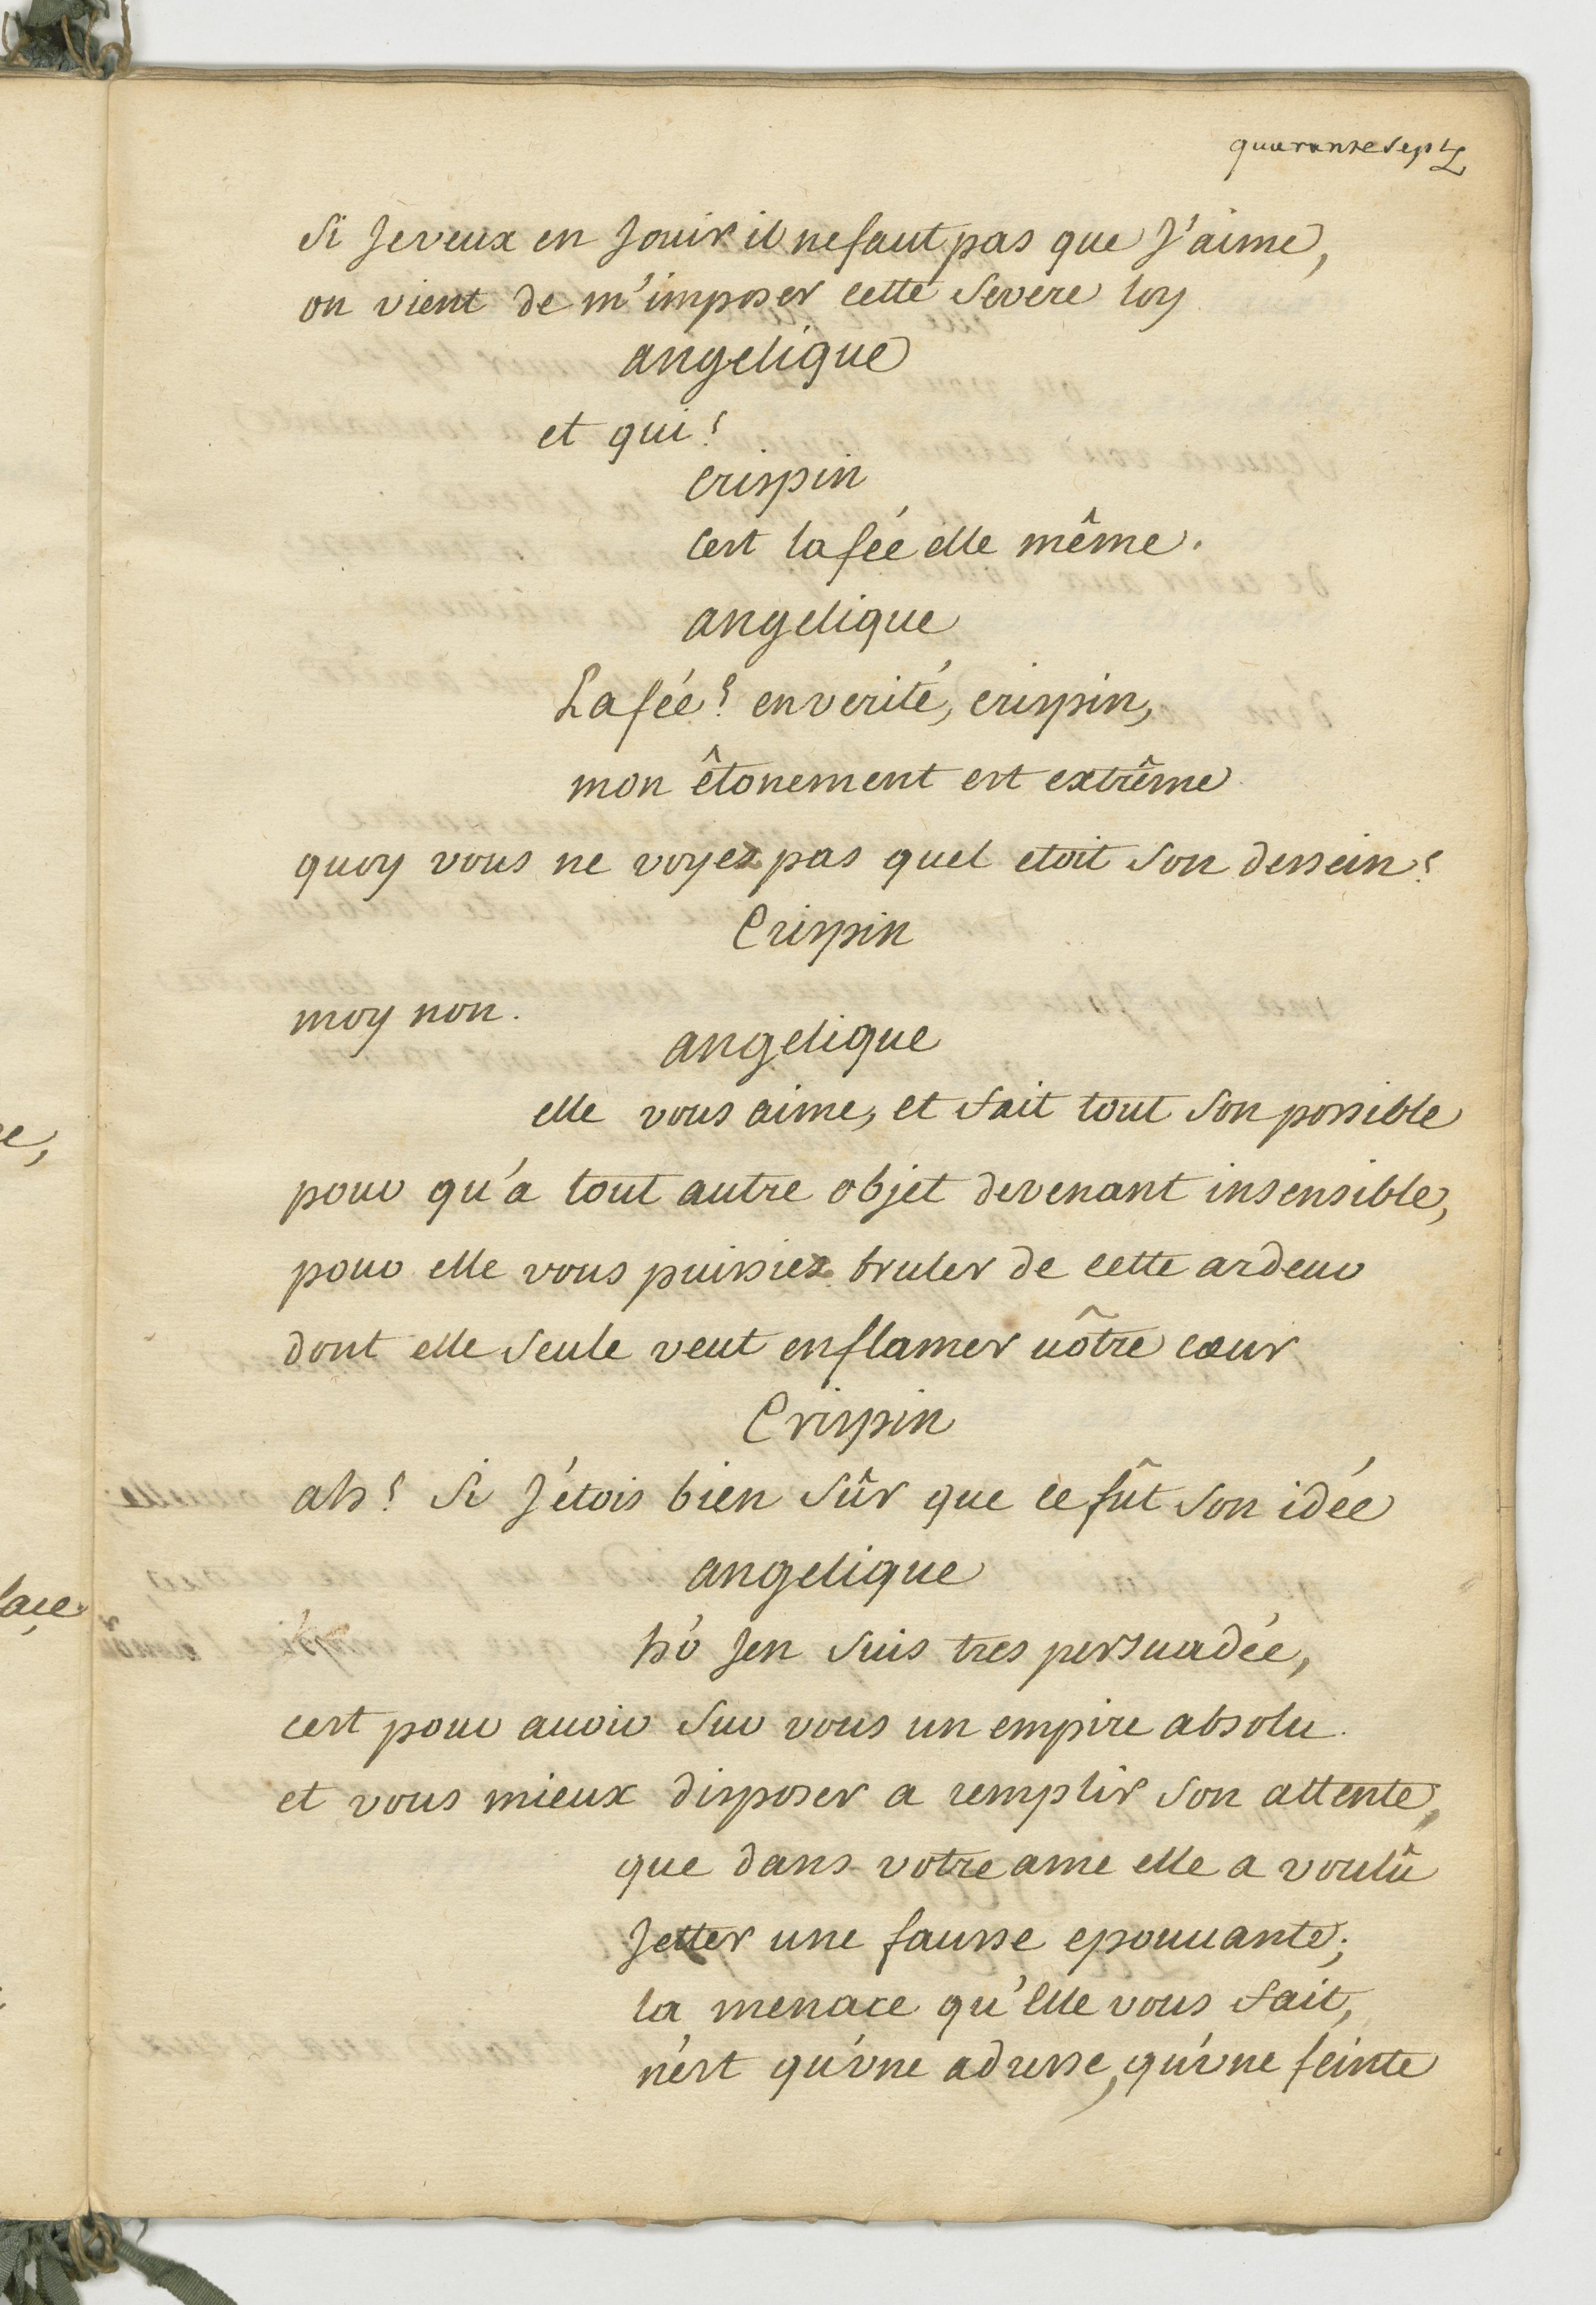 quarante sept
si Je veux en Jouir il ne faut pas que J'aime,
on vient de m'imposer cette severe loy
angelique
et qui?
crispin
c'est la fée elle même.
angelique
La fée? en verité, crispin,
mon êtonement est extrême
quoy vous ne voyez pas quel etoit son dessein?
Crispin
moy non.
angelique
elle vous aime, et fait tout son possible
pour qu'a tout autre objet devenant insensible,
pour elle vous puissiez bruler de cette ardeur
dont elle seule veut enflamer vôtre cœur
Crispin
ah! si J'étois bien sûr que ce fût son idée
angelique
hó J'en suis tres persuadée,
c'est pour auoir sur vous un empire absolu.
et vous mieux disposer a remplir son attente,
que dans votre ame elle a voulû
Jetter une fausse epouuante;
la menace qu'elle vous fait,
n'est qu'vne adresse, qu'vne feinte